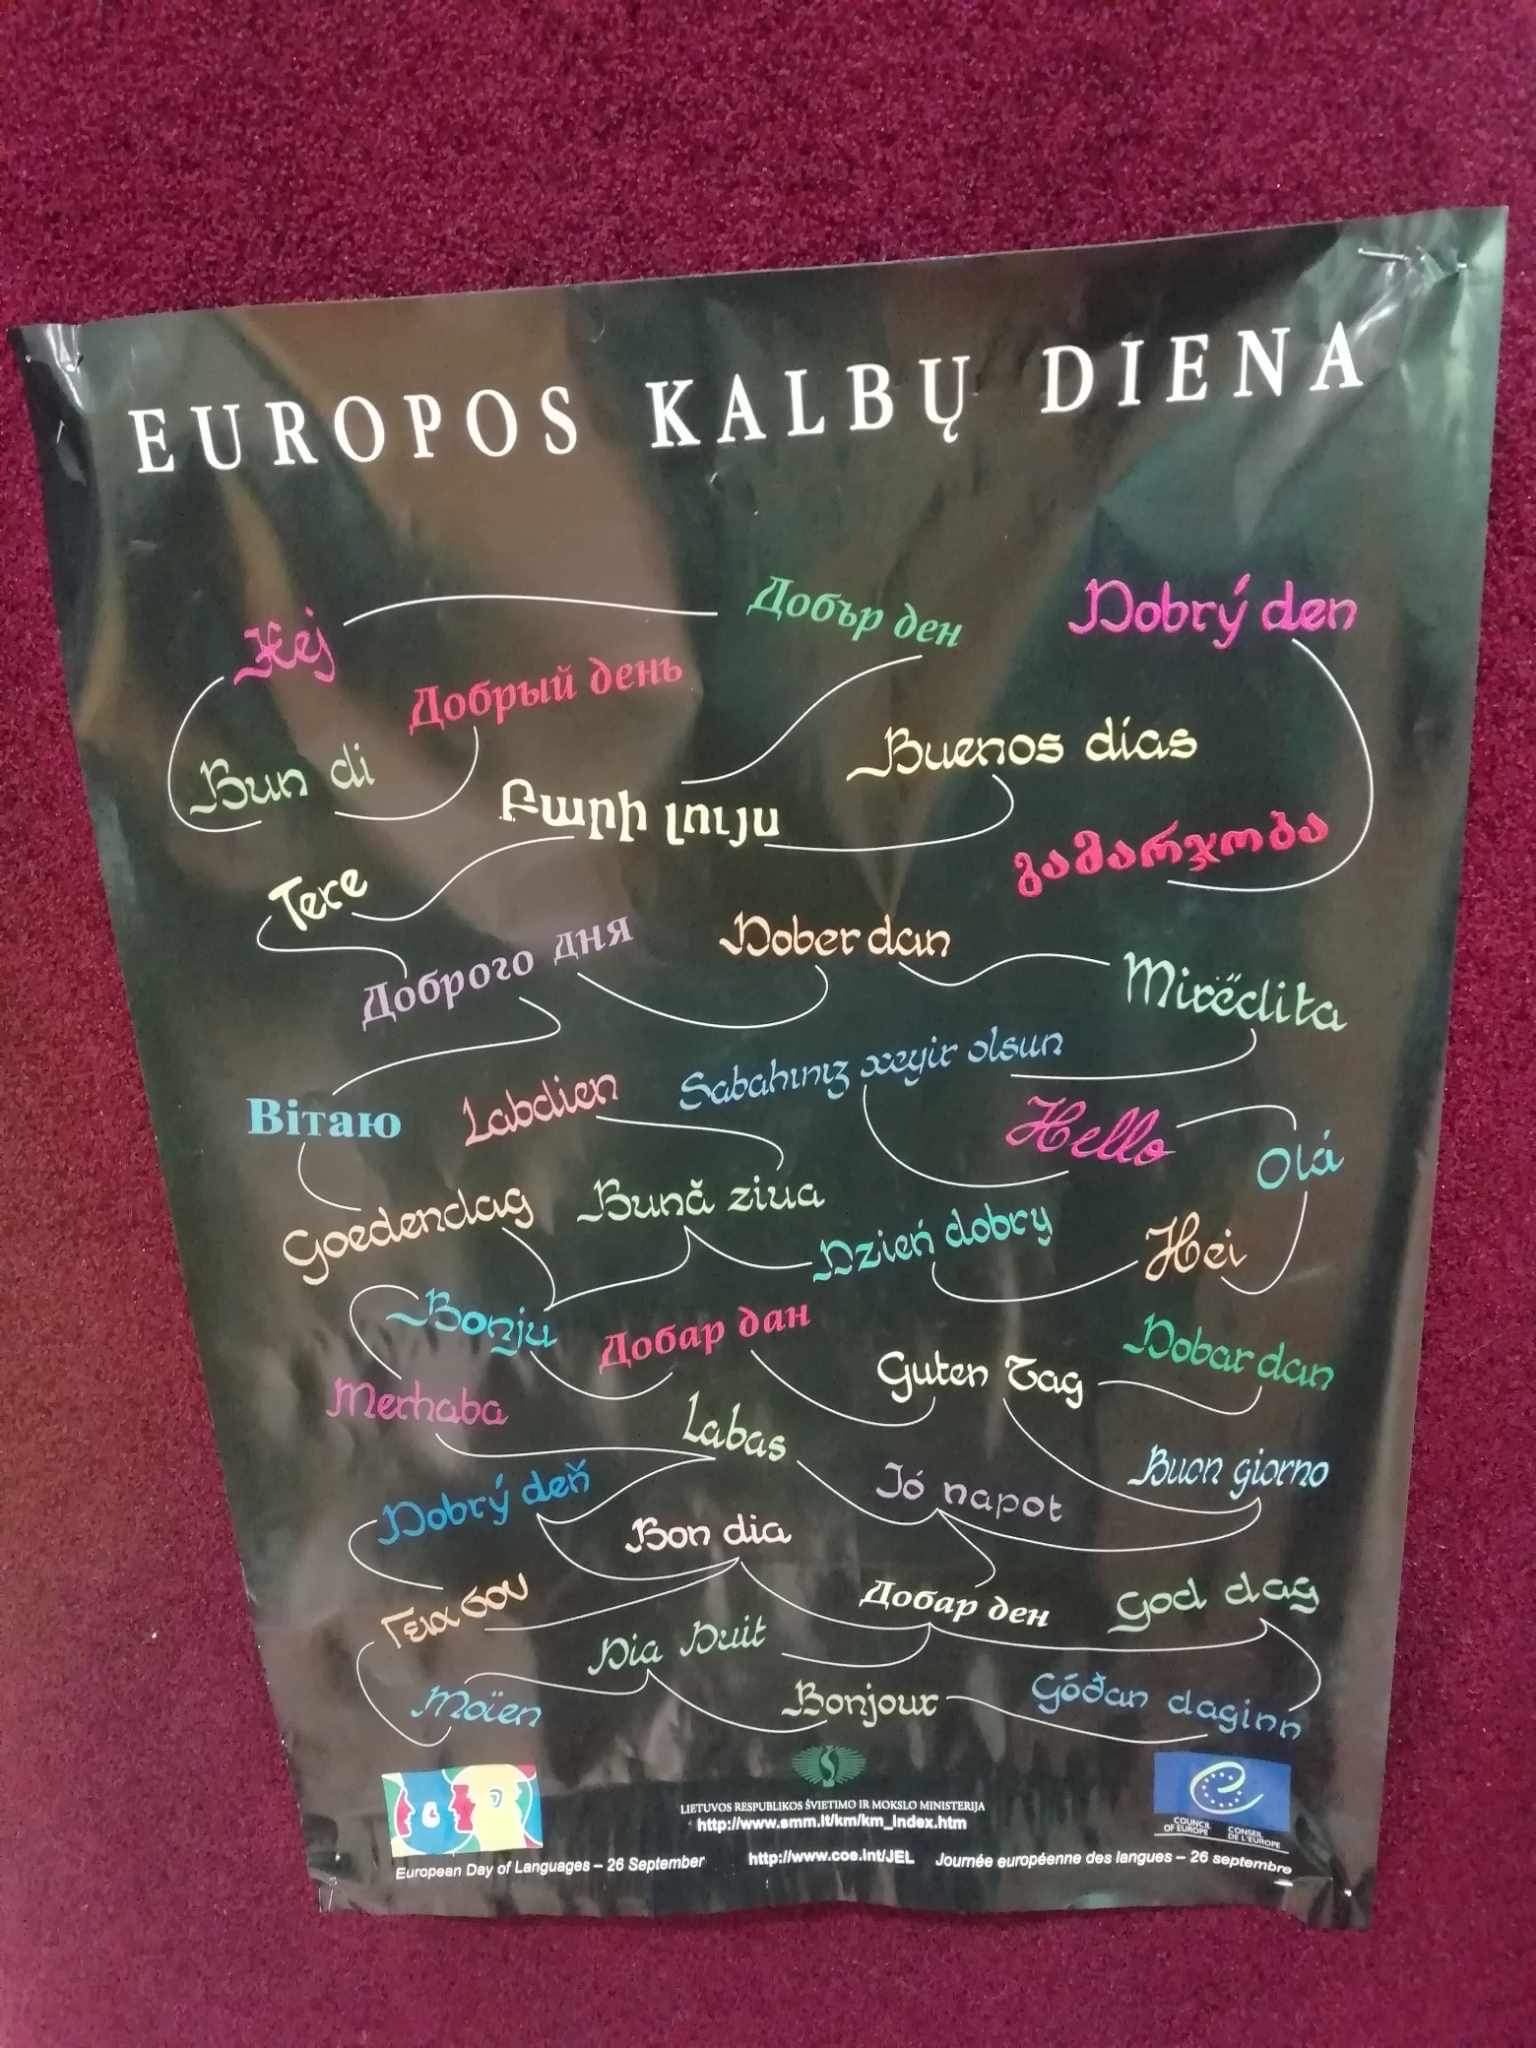 EUROPOS KALBŲ DIENA
Hej
Добър ден
Dobrý den
Добрый день
Bun di
Buenos días
Բարի լույս
გამარჯობა
Tere
Доброго дня
Dober dan
Mirëdita
Sabahınız xeyir olsun
Вітаю
Labdien
Hello
Olá
Goedendag
Bună ziua
Dzień dobry
Hei
Bonju
Добар дан
Dobar dan
Guten Tag
Merhaba
Labas
Buon giorno
Jó napot
Dobrý deň
Bon dia
Γεια σου
Добар ден
God dag
Dia Duit
Moïen
Bonjour
Góðan daginn
LIETUVOS RESPUBLIKOS ŠVIETIMO IR MOKSLO MINISTERIJA
http://www.smm.lt/km/km_index.htm
COUNCIL OF EUROPE
CONSEIL DE L'EUROPE
European Day of Languages – 26 September
http://www.coe.int/JEL
Journée européenne des langues – 26 septembre